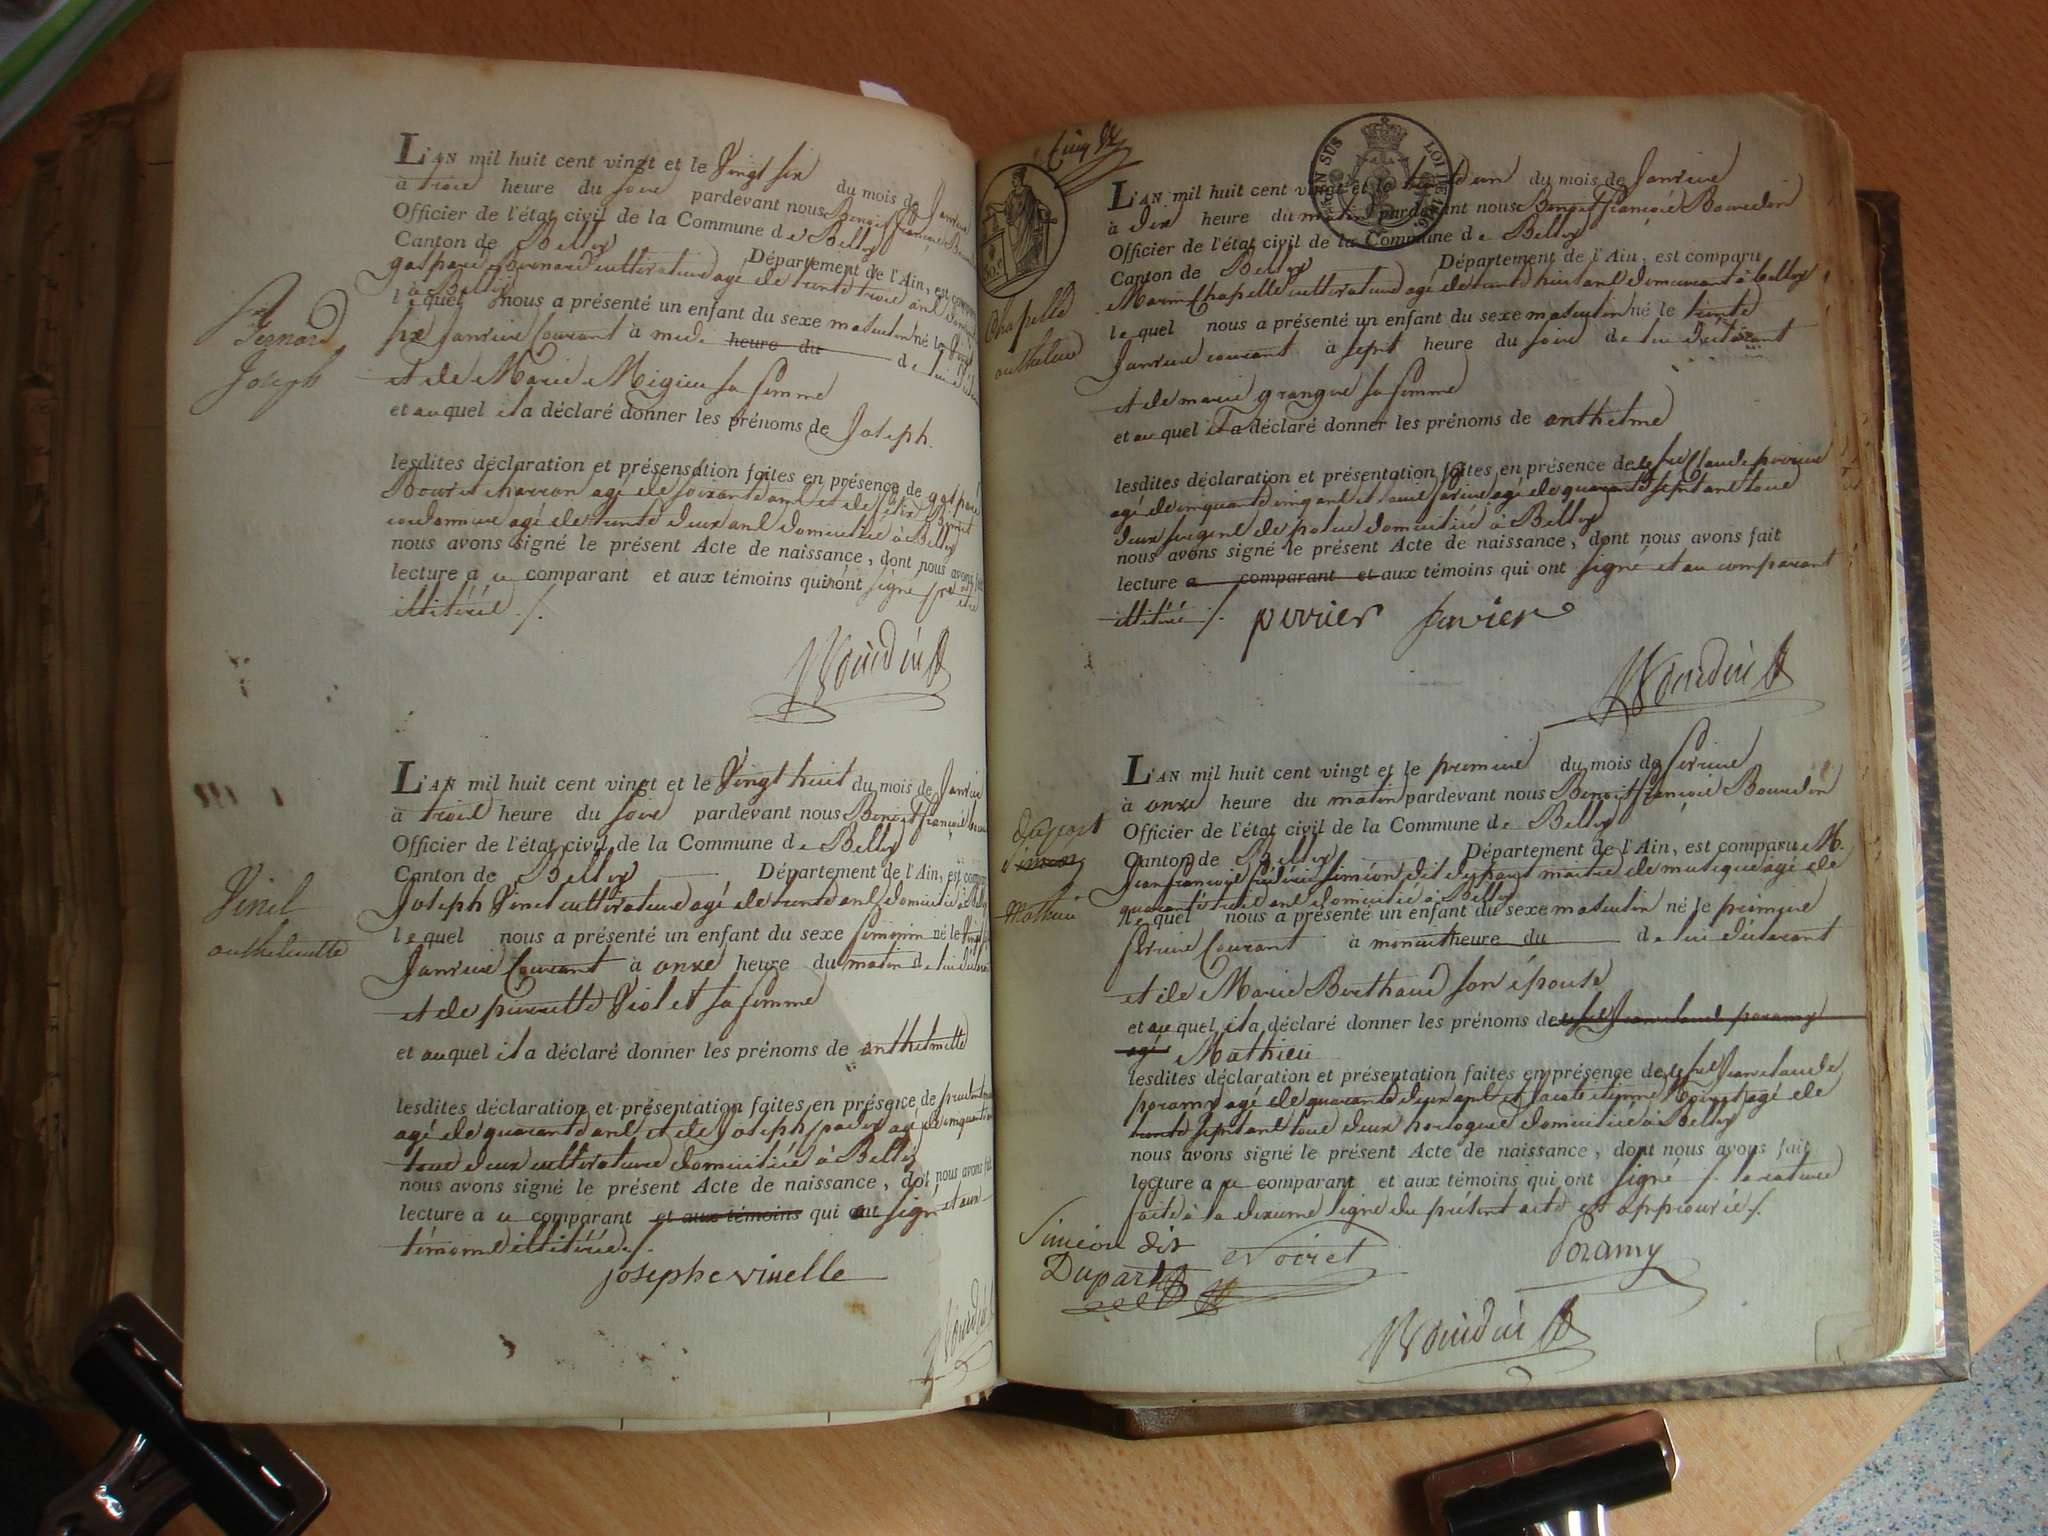 L'AN mil huit cent vingt et le Vingt six du mois de Janvier
à trois heure du soir pardevant nous Benoit François
Officier de l'état civil de la Commune de Belley
Canton de Belley Département de l'Ain, est comparu
gaspard cultivateur agé de trente trois ans
à Belley
lequel nous a présenté un enfant du sexe masculin né le Vingt
six Janvier Courant à midi heure du de lui
et de Marie Migieu sa femme
et auquel il a déclaré donner les prénoms de Joseph.
lesdites déclaration et présensation faites en présence de gaspard
Bouvet charron agé de soixante ans et de felix
cordonnier agé de trente deux ans domiciliés à Belley
nous avons signé le présent Acte de naissance, dont nous avons fait
lecture à ce comparant et aux témoins qui ont signé
illitérés ./.
Joseph
L'AN mil huit cent vingt et le Vingt huit du mois de Janvier
à trois heure du soir pardevant nous Benoit François
Officier de l'état civil de la Commune de Belley
Canton de Belley Département de l'Ain, est comparu
Joseph Vinel cultivateur agé de trente ans domicilié à
lequel nous a présenté un enfant du sexe féminin né le
Janvier Courant à onze heure du matin de lui
et de pierrette Violet sa femme
et auquel il a déclaré donner les prénoms de anthelmette
lesdites déclaration et présentation faites en présence de
agé de quarante ans et de Joseph agé de cinquante
tous deux cultivateurs domiciliés à Belley
nous avons signé le présent Acte de naissance, dont nous avons fait
lecture à ce comparant et aux témoins qui ont signé et aux
témoins illitérés ./.
Vinel
anthelmette
josephe vinelle
Cinq
TIMBRE SUS LOI DE 1816
L'AN mil huit cent vingt et le trente un du mois de Janvier
à dix heure du matin pardevant nous Benoit François Bourdin
Officier de l'état civil de la Commune de Belley
Canton de Belley Département de l'Ain, est comparu
Marin Chapelle cultivateur agé de trente huit ans demeurant à belley
lequel nous a présenté un enfant du sexe masculin né le trente
Janvier courant à sept heure du soir de lui déclarant
et de marie granger sa femme
et auquel il a déclaré donner les prénoms de anthelme
lesdites déclaration et présentation faites en présence de Claude perrier
agé de cinquante cinq ans et agé de quarante sept ans tous
deux sergent de police domiciliés à Belley
nous avons signé le présent Acte de naissance, dont nous avons fait
lecture a comparant et aux témoins qui ont signé et au comparant
illitéré ./.
Chapelle
anthelme
perrier Favier
L'AN mil huit cent vingt et le premier du mois de février
à onze heure du matin pardevant nous Benoit françois Bourdin
Officier de l'état civil de la Commune de Belley
Canton de Belley Département de l'Ain, est comparu M.
Jean françois fréderic Siméon dit dupart maitre de musique agé de
quarante ans domicilié à Belley
lequel nous a présenté un enfant du sexe masculin né le premier
février Courant à minuit heure du de lui déclarant
et de Marie Berthaud son épouse
et auquel il a déclaré donner les prénoms de
agé Mathieu
lesdites déclaration et présentation faites en présence de Jean claude
poramy agé de quarante deux ans et etienne Noiret agé de
trente sept ans tous deux horloger domiciliés à Belley
nous avons signé le présent Acte de naissance, dont nous avons fait
lecture a ce comparant et aux témoins qui ont signé ./. la rature
faite à la dixieme ligne du présent acte est approuvée ./.
dupart
Siméon
Mathieu
Siméon dit
Dupart Noiret Poramy